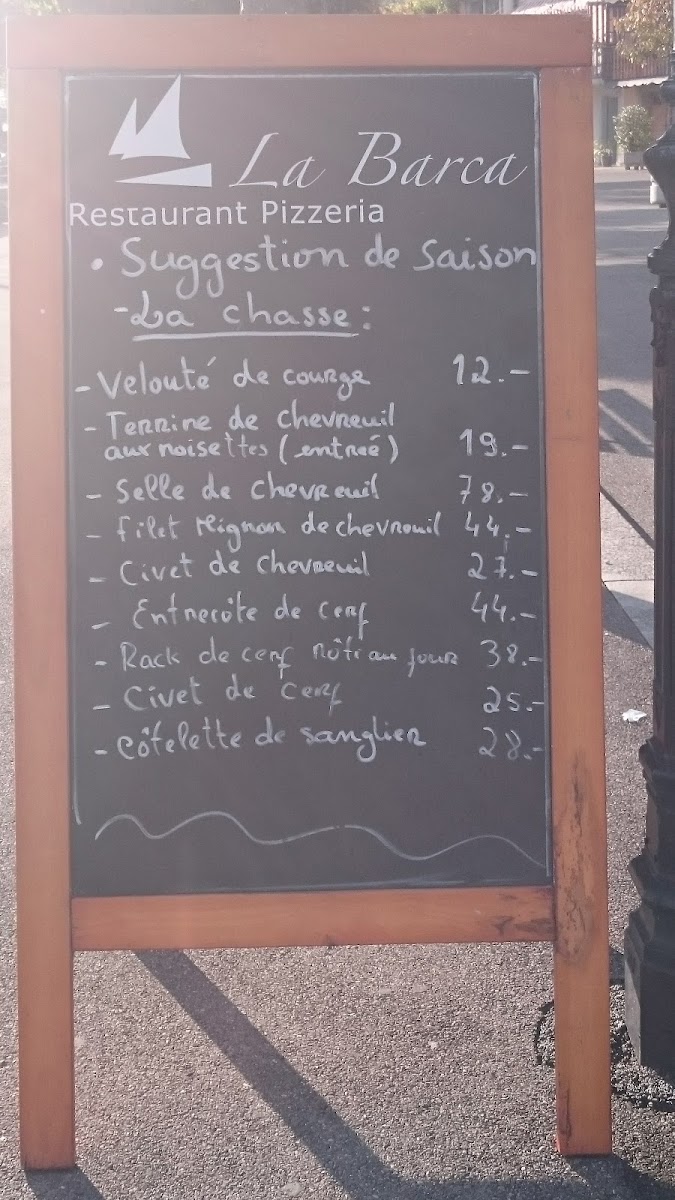 La Barca
Restaurant Pizzeria
• Suggestion de saison
- La chasse :
- Velouté de courge 12.-
- Terrine de chevreuil
aux noisettes (entrée) 19.-
- Selle de chevreuil 78.-
- Filet Mignon de chevreuil 44.-
- Civet de chevreuil 27.-
- Entrecôte de cerf 44.-
- Rack de cerf rôti au four 38.-
- Civet de cerf 25.-
- Côtelette de sanglier 28.-